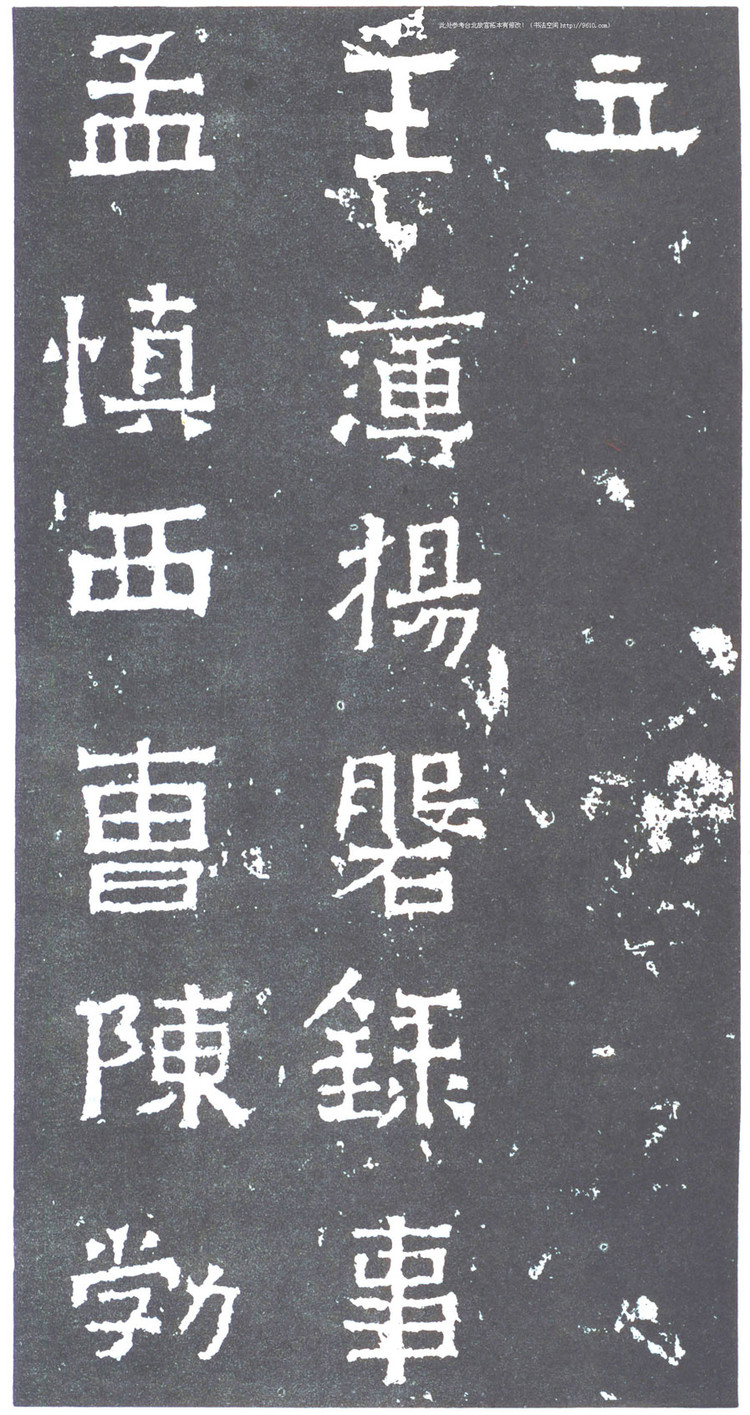 此处参考台北故宫拓本有修改!(书法空间 http://9610.com)
立
主薄揚磐錄事
孟慎西曹陳勃